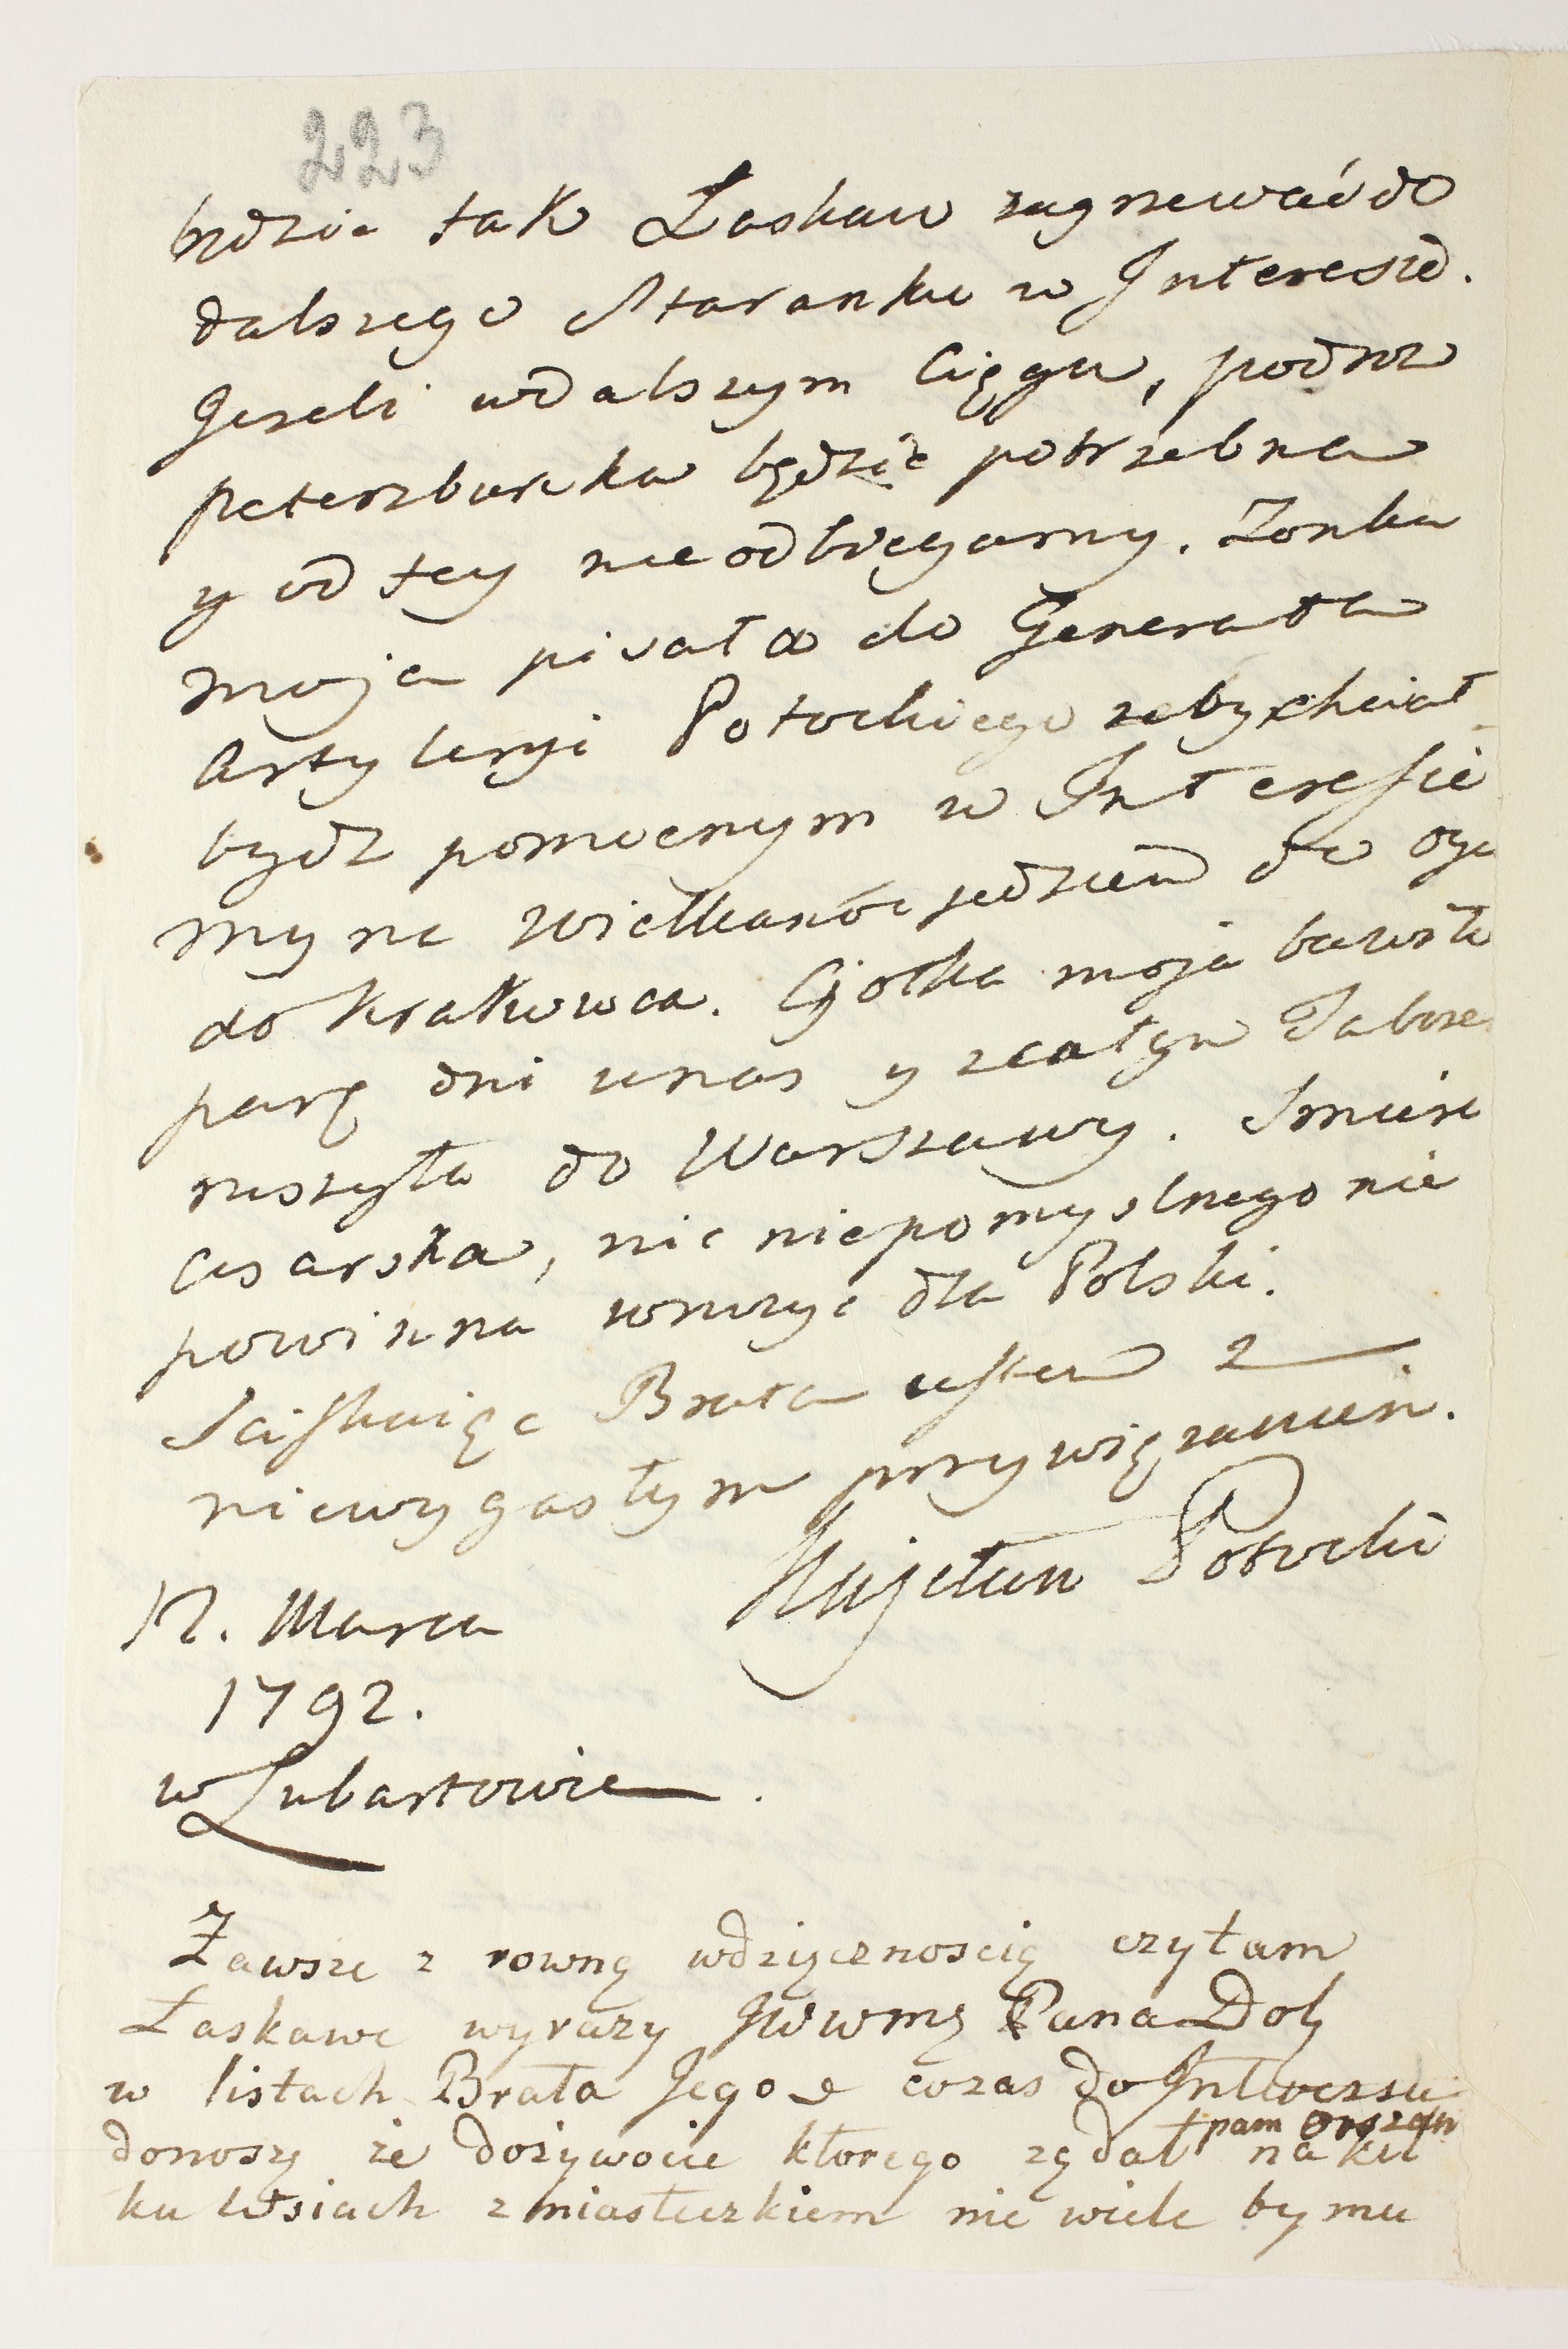 223
będzie tak Łaskaw zagrzewać do
dalszego Staranku w Interesie.
Jeżeli w dalszym Ciągu, podroż
peterzburska będzie potrzebna
y od tey nieodbiegamy. Żonka
moja pisała do Generała
Artyleryi Potockiego zeby chciał
bydz pomocnym w Interessie
my na Wielkanóc jedziem do
do Krakowca. Cjotka moja bawiła
parę dni u nas y z całym
ruszyła do Warszawy. Smierć
Cesarska, nic niepomyslnego nie
powinna wrużyć dla Polski.
Sciskaięc Brata estem z
niewygasłym przywięzaniem.
Kajetan Potocki
12. Marca
1792.
w Lubartowie.
Zawsze z rowną wdzięcznoscią czytam
Łaskawe wyrazy JWWMę Pana Dob
w listach Brata Jego co zas do Interessu
donoszę że dożywocie ktorego żędał pam Orszan na kil
ku Wsiach z miasteczkiem nie wiele by mu